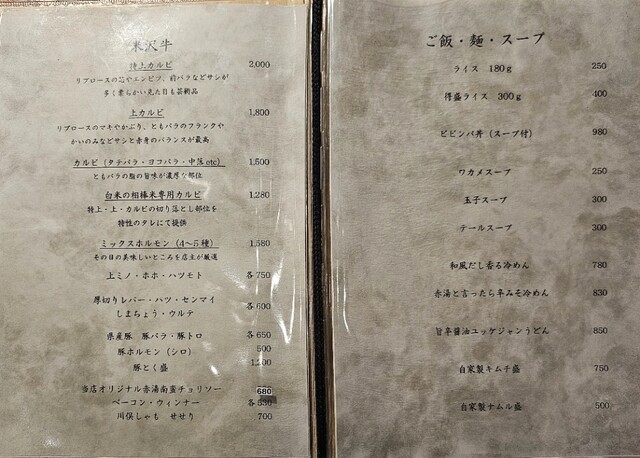 米沢牛
特上カルビ 2,000
リブロースの芯やエンピツ、前バラなどサシが
多く柔らかい見た目も芸術品
上カルビ 1,800
リブロースのマキやかぶり、ともバラのフランクや
かいのみなどサシと赤身のバランスが最高
カルビ（タテバラ・ヨコバラ・中落etc） 1,500
ともバラの脂の旨味が濃厚な部位
白米の相棒米専用カルビ 1,280
特上・上・カルビの切り落とし部位を
特性のタレにて提供
ミックスホルモン（4～5種） 1,580
その日の美味しいところを店主が厳選
上ミノ・ホホ・ハツモト 各750
厚切りレバー・ハツ・センマイ
しまちょう・ウルテ 各600
県産豚 豚バラ・豚トロ 各650
豚ホルモン（シロ） 500
豚とく盛 1,200
当店オリジナル赤湯南蛮チョリソー 680
ベーコン・ウィンナー 各530
川俣しゃも せせり 700
ご飯・麺・スープ
ライス 180g 250
得盛ライス 300g 400
ビビンバ丼（スープ付） 980
ワカメスープ 250
玉子スープ 300
テールスープ 300
和風だし香る冷めん 780
赤湯と言ったら辛みそ冷めん 830
旨辛醤油ユッケジャンうどん 850
自家製キムチ盛 750
自家製ナムル盛 500